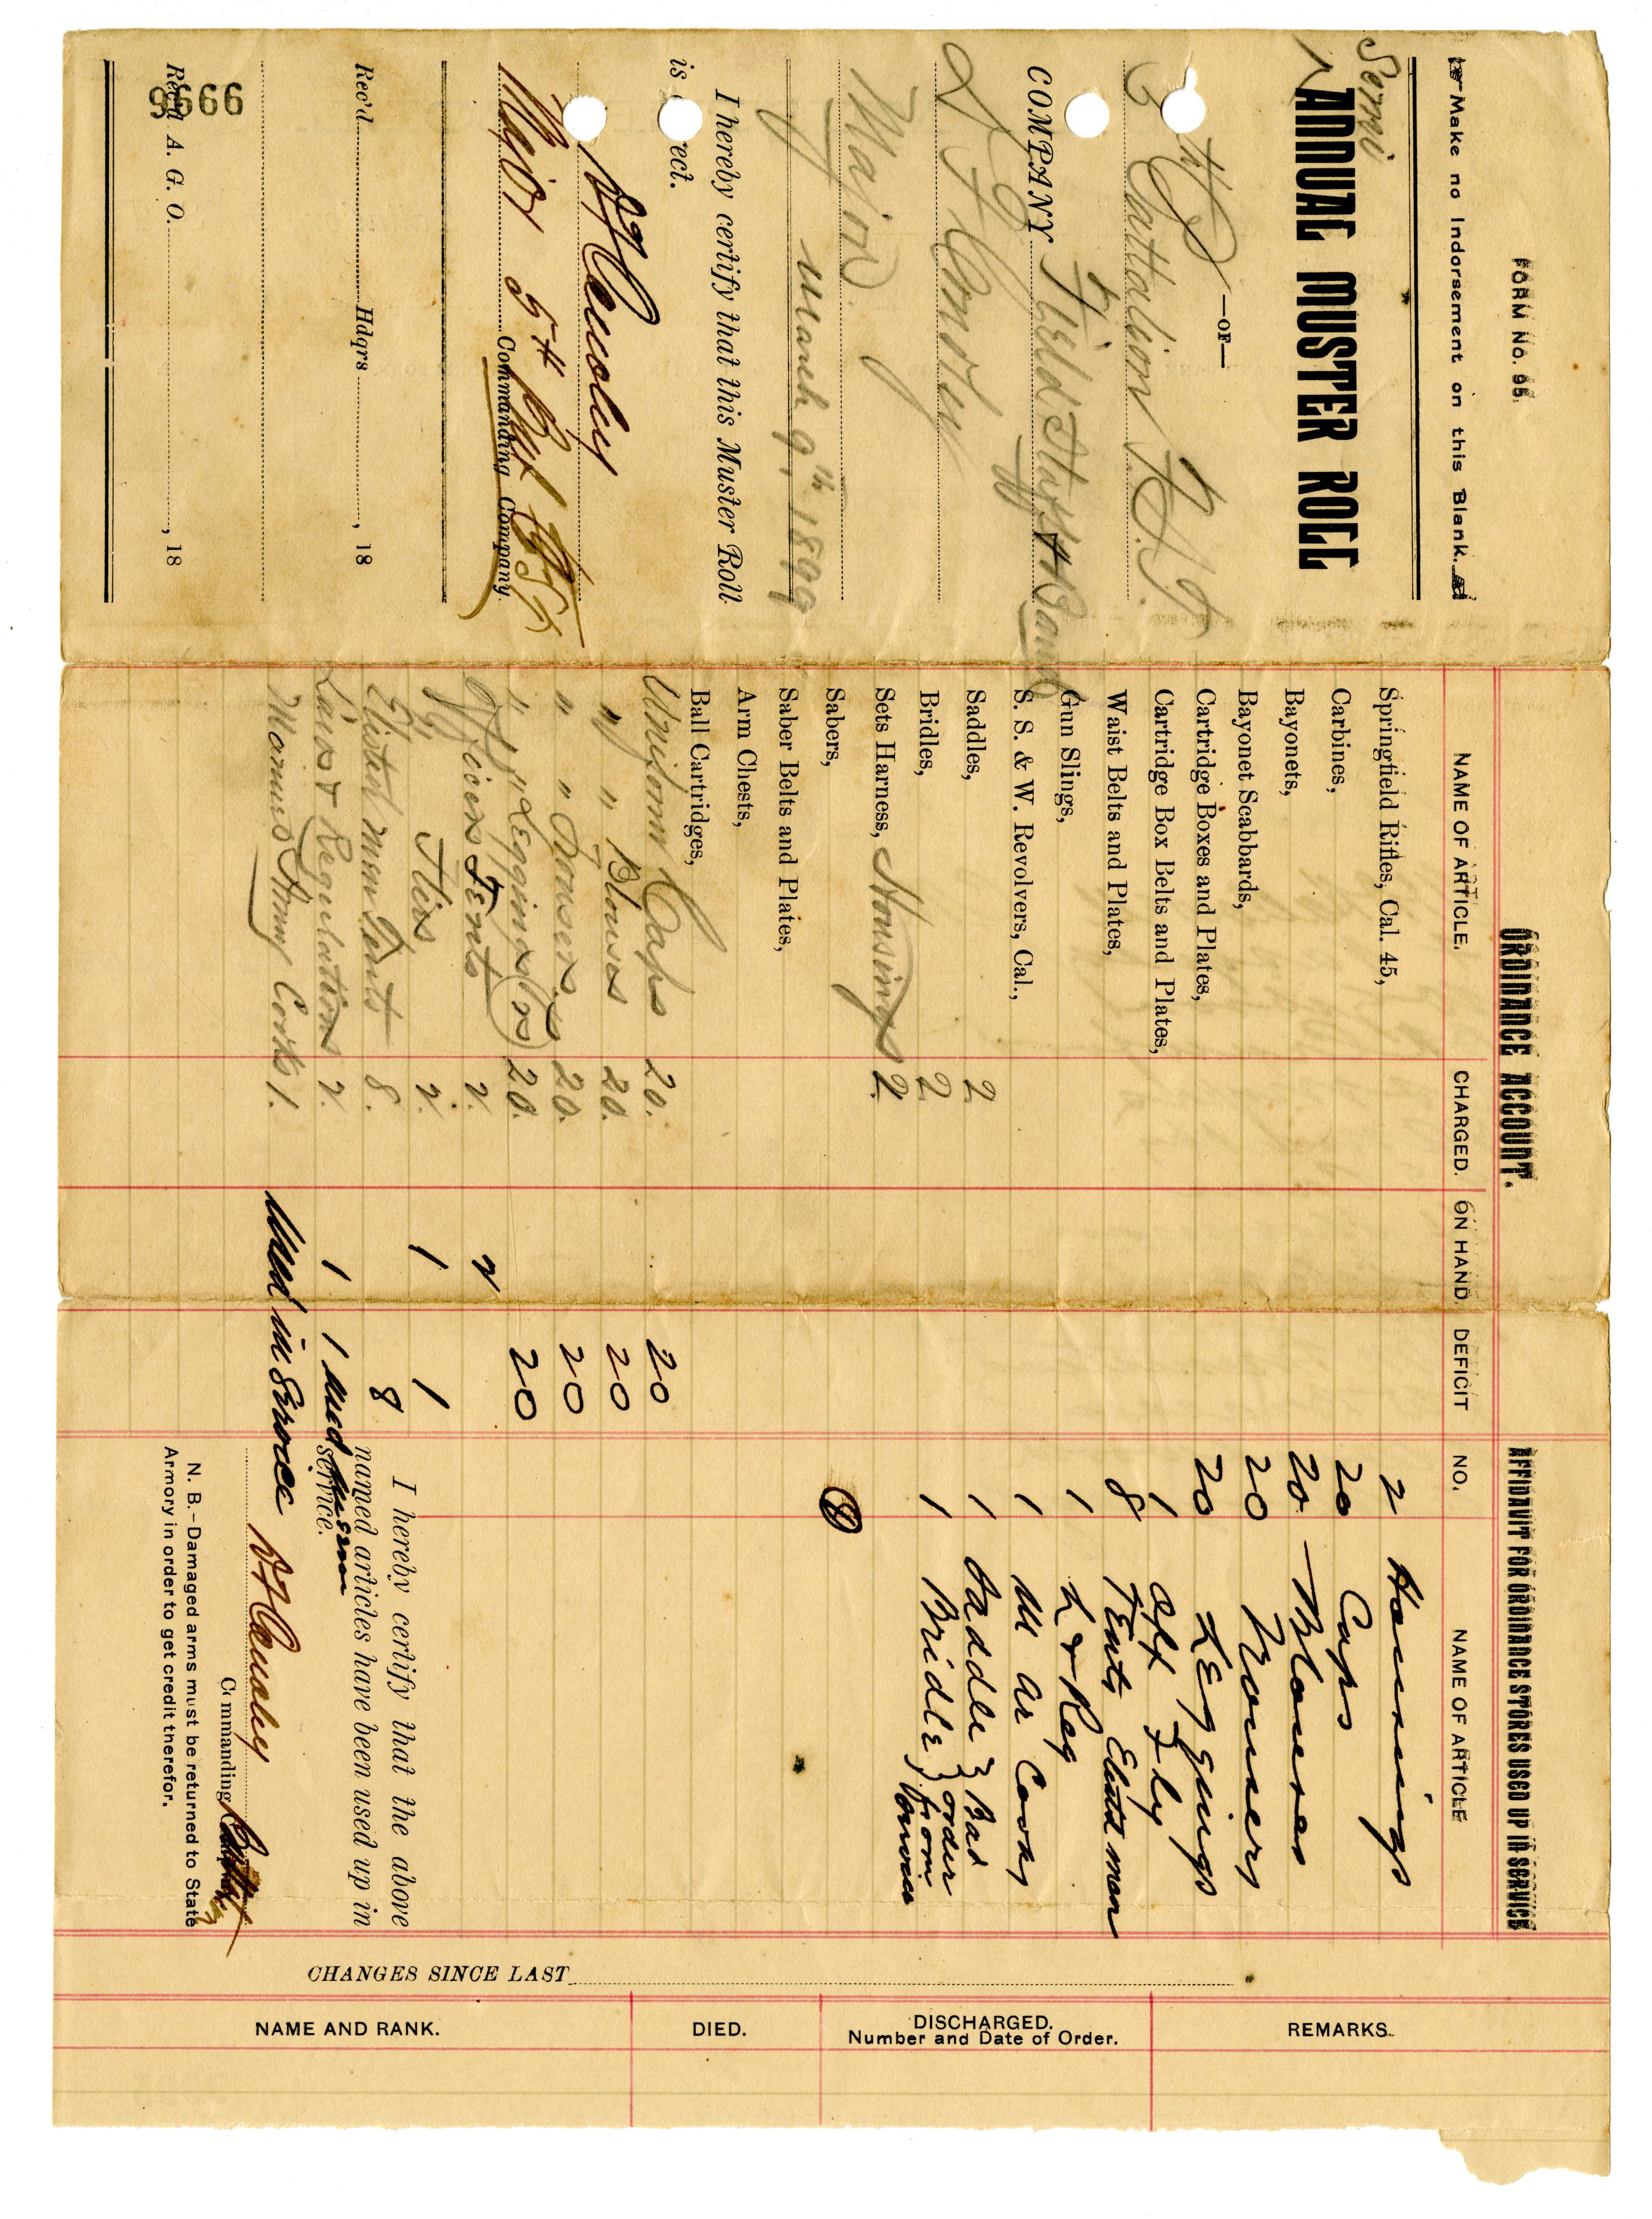 FORM No. 95.
Make no Indorsement on this Blank.
Semi
ANNUAL MUSTER ROLL
—OF—
5th Battalion
COMPANY Field Staff & Band
Major
March 9th 1899
I hereby certify that this Muster Roll
is correct.
Major 5th Bat
Commanding Company
Rec'd Hdqrs , 18
9666
Rec'd A. G. O. , 18
ORDNANCE ACCOUNT.
NAME OF ARTICLE. CHARGED. ON HAND. DEFICIT
Springfield Rifles, Cal. 45,
Carbines,
Bayonets,
Bayonet Scabbards,
Cartridge Boxes and Plates,
Cartridge Box Belts and Plates,
Waist Belts and Plates,
Gun Slings,
S. S. & W. Revolvers, Cal.,
Saddles, 2
Bridles, 2
Sets Harness, Housings 2.
Sabers,
Saber Belts and Plates,
Arm Chests,
Ball Cartridges,
Uniform Caps 20. 20
" " Blouses 20. 20
" " Trousers 20. 20
" " Leggings (prs) 20. 20
Officers Tents 2. 2
" Flies 2. 1 1
Elisted men Tents 8. 8
Laws & Regulations 2. 1 1 used in
Manuel Army Cooks 1. Used in Service
AFFIDAVIT FOR ORDNANCE STORES USED UP IN SERVICE
NO. NAME OF ARTICLE
2 Housings
20 Caps
20 — Blouses
20 Trousers
20 Leggings
1 Off Fly
8 Tents Elisted men
1 L & Reg
1 M Ar Cooks
1 Saddle } Bad order
1 Bridle } from
I hereby certify that the above
named articles have been used up in
service.
Commanding
N. B.—Damaged arms must be returned to State
Armory in order to get credit therefor.
CHANGES SINCE LAST
NAME AND RANK. DIED. DISCHARGED. REMARKS.
Number and Date of Order.